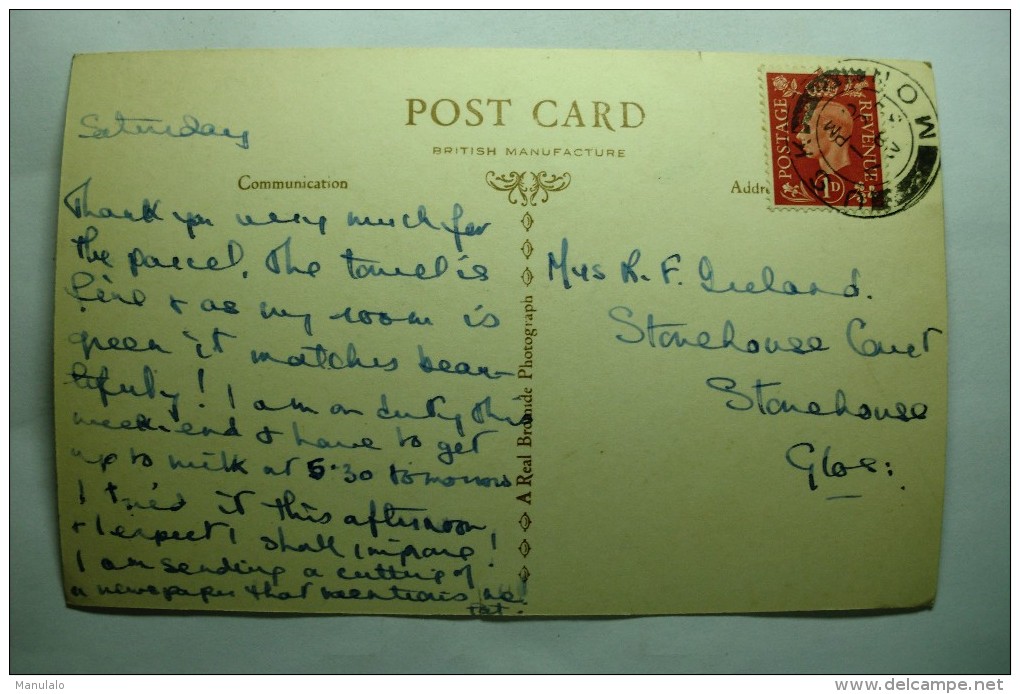 POST CARD
BRITISH MANUFACTURE
Communication
Addre
POSTAGE
REVENUE
1D
PM
A Real Bromide Photograph
Saturday
Thank you very much for
the parcel. The towel is
fine & as my room is
green it matches beau-
tifully! I am on duty this
weekend & have to get
up to milk at 5.30 tomorrow
I tried it this afternoon,
& I expect I shall improve!
I am sending a cutting of
a newspaper that mentions me
Mrs R. F. Ireland.
Stonehouse Court
Stonehouse
Glos:
Manulalo
www.delcampe.net